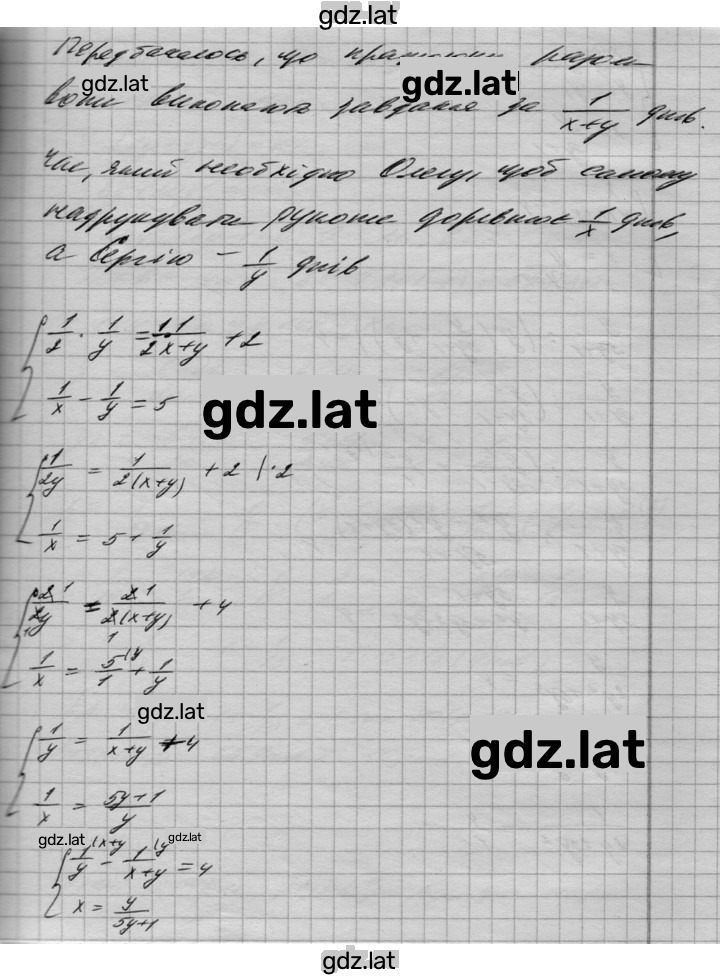 gdz.lat
Передбачалось, що працюючи разом
gdz.lat
gdz.lat
вони виконають завдання за 1/(x+y) днів.
Час, який необхідно Олегу, щоб самому
надрукувати рукопис дорівнює 1/x днів,
а Сергію – 1/y днів
1/2 · 1/y = 1/2 · 1/(x+y) + 2
1/x - 1/y = 5
gdz.lat
1/(2y) = 1/(2(x+y)) + 2 | ·2
1/x = 5 + 1/y
2/(2y) = 2/(2(x+y)) + 4
1/x = 5/1 + 1/y
gdz.lat
1/y = 1/(x+y) + 4
gdz.lat
1/x = (5y+1)/y
gdz.lat
gdz.lat
1/y - 1/(x+y) = 4
x = y/(5y+1)
gdz.lat